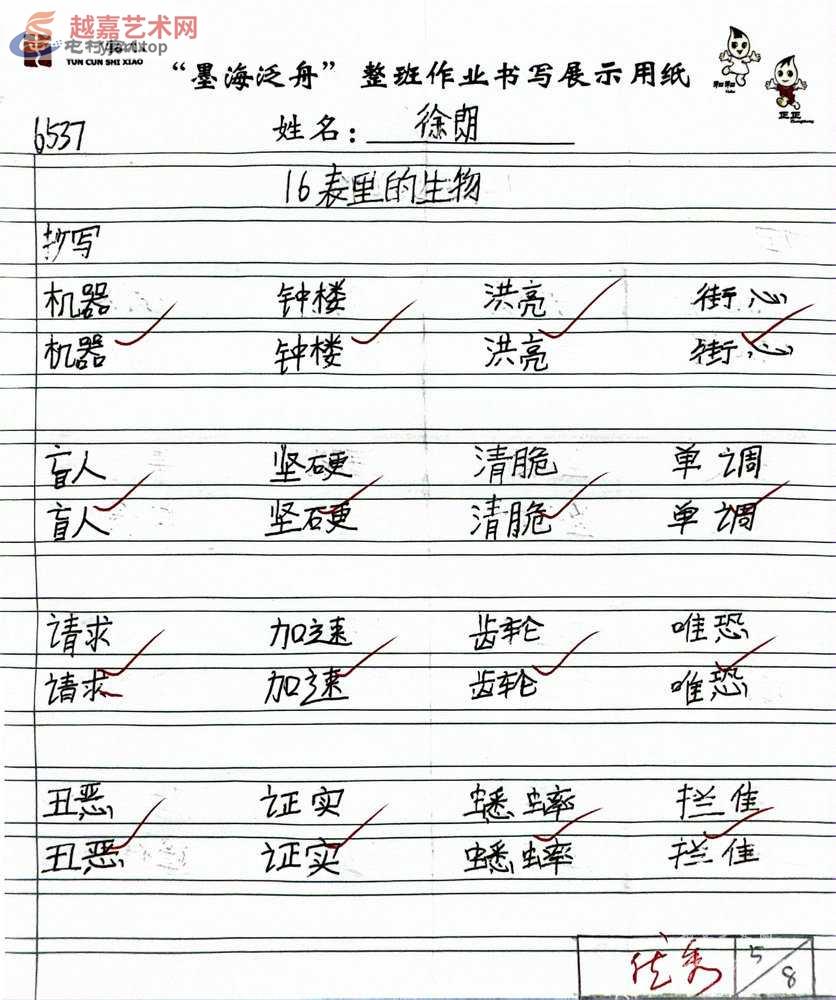 越嘉艺术网
yjart.top
TUN CUN SHI XIAO
“墨海泛舟”整班作业书写展示用纸
和和
正正
6537
姓名：徐朗
16表里的生物
抄写
机器 钟楼 洪亮 街心
机器 钟楼 洪亮 街心
盲人 坚硬 清脆 单调
盲人 坚硬 清脆 单调
请求 加速 齿轮 唯恐
请求 加速 齿轮 唯恐
丑恶 证实 蟋蟀 拦住
丑恶 证实 蟋蟀 拦住
优秀 5/8